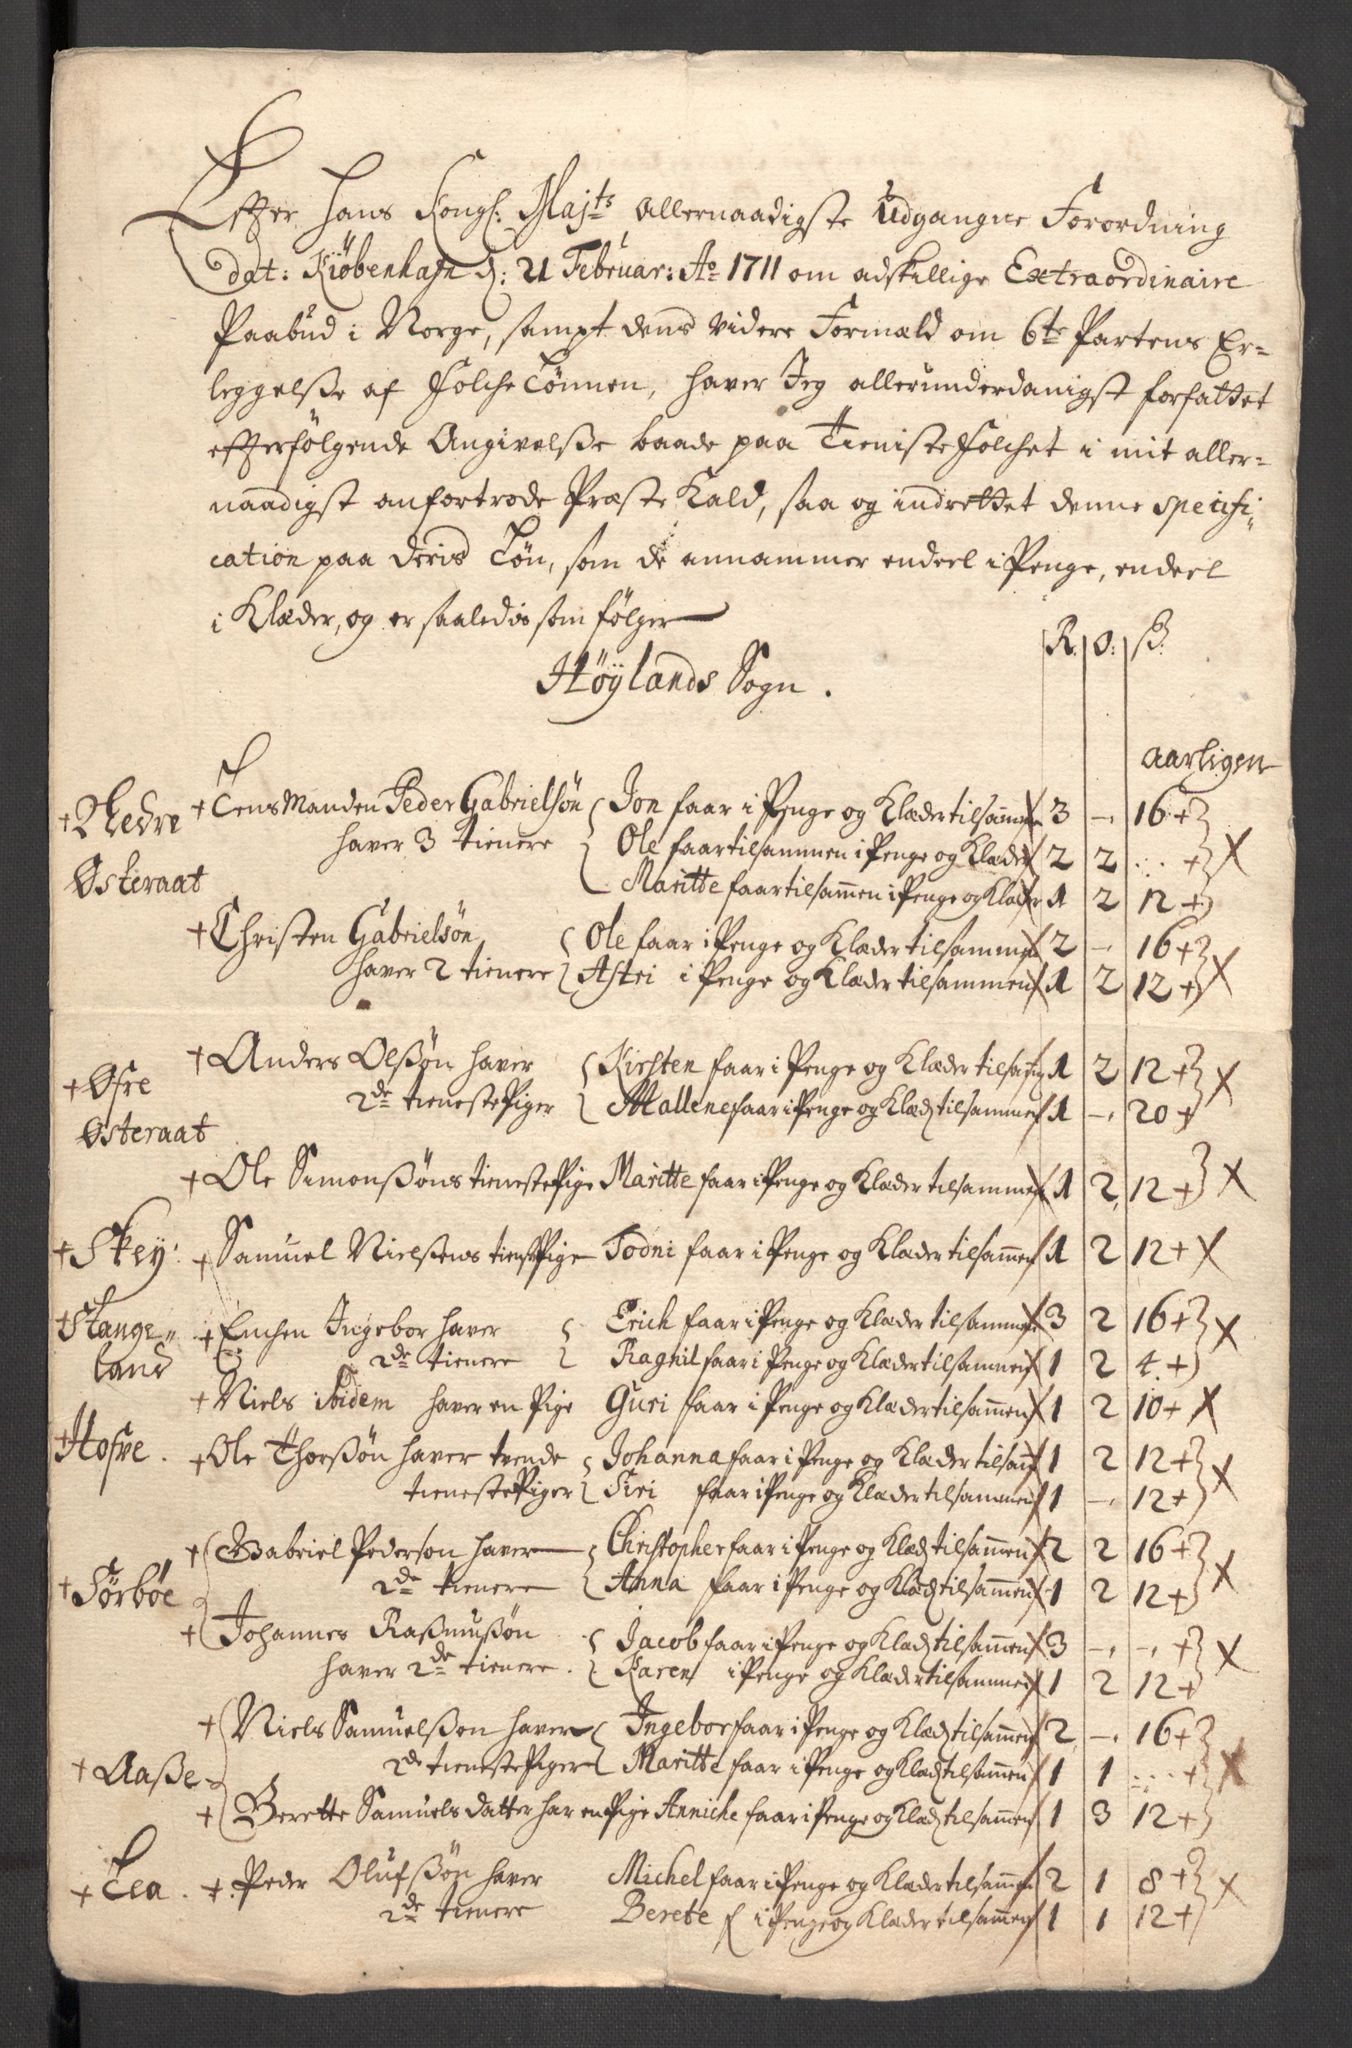 Efter Hans Kongl: Majts allernaadigste Udgangne Forordning
dat: Kiøbenhafn d: 21 Februar: Ao 1711 om adskillige Extraordinaire
Paabud i Norge, sampt dens videre Formæld om 6te Partens Er=
leggelsse af Folche Lønnen, haver Jeg allerunderdanigst forfattet
efterfølgende Angivelsse baade paa Tieniste Folchet i mit aller=
naadigst anfortrode Præste Kald, saa og indrettet denne specifi„
cation paa deris Løn, som de annammer endeel i Penge, endeel
i Klæder, og er saaledis som følger
R. O: ß:
Höÿlands Sogn.
aarligen
+ Nedre + Lens Manden Peder Gabrielsøn { Jon faar i Penge og Klæder tilsammen 3 – 16 + X
haver 3 tienere { Ole faar tilsammen i Penge og Klæder 2 2 ... +
Østeraat Maritte faar tilsammen i Penge og Klæder 1 2 12 +
+ Christen Gabrielsøn { Ole faar i Penge og Klæder tilsammen 2 – 16 + X
haver 2 tienere { Astri i Penge og Klæder tilsammen 1 2 12 +
+ Øfre + Anders Olßøn haver { Kirsten faar i Penge og Klæder tilsam 1 2 12 + X
2de tieneste Piger { Mallene faar i Penge og Klæd tilsammen 1 – 20 +
Østeraat
+ Ole Simonßøns tieneste Pige Maritte faar i Penge og Klæder tilsammen 1 2 12 + X
+ Skeÿ: + Samuel Nielßens tienste Pige Todni faar i Penge og Klæder tilsammen 1 2 12 + X
+ Stange„ + Enchen Ingebor haver { Erich faar i Penge og Klæder tilsammen 3 2 16 + X
land 2de tienere { Ragnil faar i Penge og Klæder tilsammen 1 2 4. +
+ Niels ibidem haver en Pige Guri faar i Penge og Klæder tilsammen 1 2 10 + X
+ Hofve. + Ole Thorßøn haver tvende { Johanna faar i Penge og Klæder tilsam 1 2 12 + X
tieneste Piger { Siri faar i Penge og Klæder tilsammen 1 – 12 +
+ Gabriel Pederson haver { Christopher faar i Penge og Klæd tilsammen 2 2 16 + X
+ Sørbøe 2de tienere { Anna faar i Penge og Klæd tilsammen 1 2 12 +
+ Johannes Raßmußøn { Jacob faar i Penge og Klæd tilsammen 3 – – + X
haver 2de tienere. { Karen i Penge og Klæder tilsammen 1 2 12 +
+ Niels Samuelßøn haver { Ingebor faar i Penge og Klæd tilsammen 2 – 16 +
+ Aaße 2de tieneste Piger { Maritte faar i Penge og Klæd tilsammen 1 1 ... + X
+ Berette Samuels datter har en Pige Anniche faar i Penge og Klæd tilsammen 1 3 12 +
+ Lea. + Peder Olufßøn haver Michel faar i Penge og Klæder tilsammen 2 1 8 + X
2de tienere Berete f i Penge og Klæder tilsammen 1 1 12 +